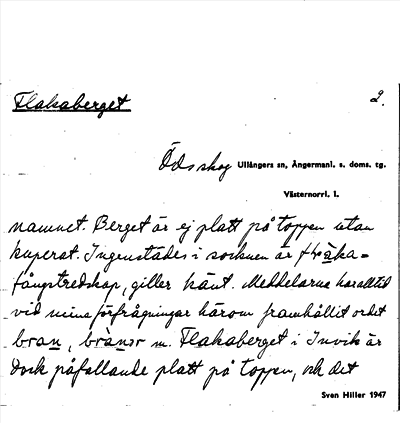 Flakaberget 2.
Ödsskog Ullångers sn, Ångermanl. s. doms. tg.
Västernorrl. l.
namnet. Berget är ej platt på toppen utan
kuperat. Ingenstädes i socknen är
fångstredskap, giller känt. Meddelarna har alltid
vid mina förfrågningar härom framhållit ordet
bran, brànər m. Flakaberget i Invik är
dock påfallande platt på toppen, och det
Sven Hiller 1947